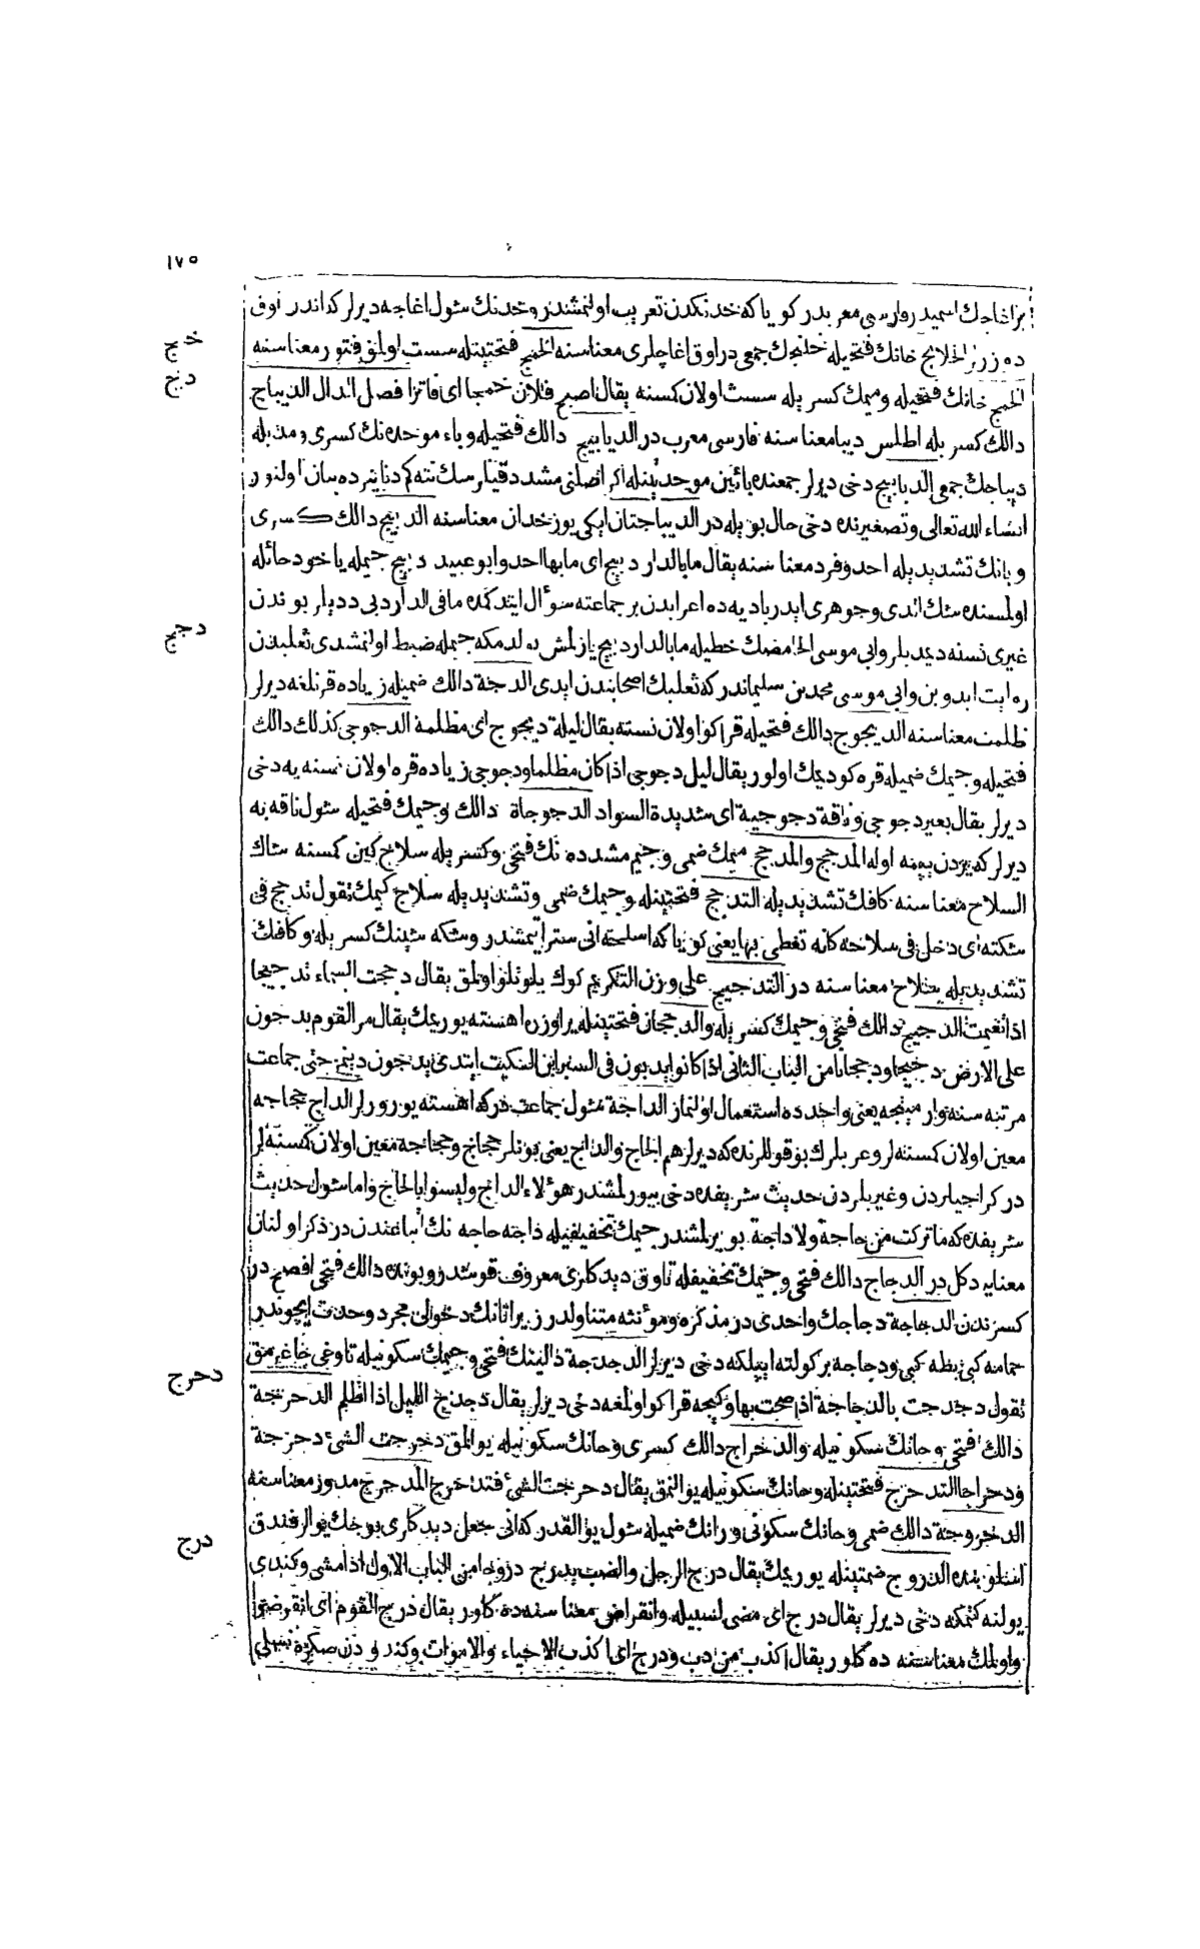 ١٧٥
بر اغاجك اسميدر وفارسى معربدر كويا كه خدنكدن تعريب اولنمشدر وخدنك شول اغاجه ديرلر كه اندن اوق
خمج
ده زرلر الخلانج خانك فتحيله خلنجك جمعى در اوق اغاچلرى معناسنه الخمج فتحتينله سست اولمق فتور معناسنه
دبج
الخمج خانك فتحيله وميمك كسريله سست اولان كمسنه يقال اصبح فلان خمجا اى فاترا فصل الدال الديباج
دالك كسريله اطلس ديبا معناسنه فارسى معرب در الديابيج دالك فتحيله وباء موحده نك كسرى ومديله
ديباجك جمعى الدبابيج دخى ديرلر جمعنده بائين موحدتينله اكر اصلنى مشدد قيلرسك نته كم دنانيرده بيان اولنور
انشاء الله تعالى وتصغيرنده دخى حال بويله در الديباجتان ايكى يوز خدان معناسنه الدبيج دالك كسرى
وبانك تشديديله احد وفرد معناسنه يقال ما بالدار دبيج اى ما بها احد وابو عبيد دبيج جيمله ياخود حائله
اولمسنده شك اتدى وجوهرى ايدر باديه ده اعرابدن بر جماعته سؤال ايتدكمده ما فى الدار دبى دديلر بوندن
دجج
غيرى نسنه ديمديلر وابى موسى الحامضك خطيله ما بالدار دبيج يازلمش بولدمكه جيمله ضبط اولنمشدى ثعلبدن
روايت ايدوبن وابى موسى محمد بن سليماندر كه ثعلبك اصحابندن ايدى الدجة دالك ضميله زياده قرنلغه ديرلر
ظلمت معناسنه الديجوج دالك فتحيله قراكو اولان نسنه يقال ليلة ديجوج اى مظلمة الدجوجى كذلك دالك
فتحيله وجيمك ضميله قره كو ديمك اولور يقال ليل دجوجى اذا كان مظلما ودجوجى زياده قره اولان نسنه يه دخى
ديرلر يقال بعير دجوجى وناقة دجوجية اى شديدة السواد الدجوجاة دالك وجيمك فتحيله شول ناقه يه
ديرلر كه يردن يپنه اوله المدجج والمدجج ميمك ضمى وجيم مشدده نك فتحى وكسريله سلاح كين كمسنه شاك
السلاح معناسنه كافك تشديديله التدجج فتحتينله وجيمك ضمى وتشديديله سلاح كيمك تقول تدجج فى
شكته اى دخل فى سلاحه كانه تغطى بها يعنى كويا كه اسلحته انى ستر اتمشدر وشكه شينك كسريله وكافك
تشديديله سلاح معناسنه در التدجيج على وزن التكريم كوك بلوتلو اولمق يقال دججت السماء تدجيجا
اذا تغيمت الدجيج دالك فتحى وجيمك كسريله والدججان فتحتينله ير اوزره اهسته يوريمك يقال مر القوم يدجون
على الارض دجيجا ودججانا من الباب الثانى اذا كانوا يدبون فى السير ابن السكيت ايتدى يدجون دينمز حتى جماعت
مرتبه سنه وارمينجه يعنى واحدده استعمال اولنماز الداجة شول جماعت در كه اهسته يورورلر الداج حجاجه
معين اولان كمسنه لر وعربلرك بو قوللرنده كه ديرلر هم الحاج والداج يعنى بونلر حجاج وحجاجه معين اولان كمسنه لر
در كراجيلردن وغيريلردن حديث شريفده دخى بيورلمشدر هؤلاء الداج وليسوا بالحاج واما شول حديث
شريفده كه ما تركت من حاجة ولا داجة بويرلمشدر جيمك تخفيفيله داجه حاجه نك اتباعندن در ذكر اولنان
معنايه دكل در الدجاج دالك فتحى وجيمك تخفيفله تاوق ديدكلرى معروف قوشدر وبونده دالك فتحى افصح در
كسرندن الدجاجة دجاجك واحدى در مذكره ومؤنثه متناولدر زيرا تانك دخولى مجرد وحدت ايچوندر
حمامه كبى بطه كبى ودجاجه بر كولته ايپلكه دخى ديرلر الدجدجة دالينك فتحى وجيمك سكونيله تاوغى چاغرمق
دحرج
تقول دجدجت بالدجاجة اذا صحت بها وكيجه قراكو اولمغه دخى ديرلر يقال دجدج الليل اذا اظلم الدحرجة
دالك فتحى وحانك سكونيله والدحراج دالك كسرى وحانك سكونيله يوالمق دحرجت الشئ دحرجة
ودحراجا التدحرج فتحتينله وحانك سكونيله يوالنمق يقال دحرجت الشئ فتدحرج المدحرج مدور معناسنه
درج
الدحروجة دالك ضمى وحانك سكونى ورانك ضميله شول يوالقدر كه انى جعل ديدكلرى بوجك يوالر فندق
انلوبنده الدروج ضمتينله يوريمك يقال درج الرجل والضب يدرج دروجا من الباب الاول اذا مشى وكندى
يولنه كتمكه دخى ديرلر يقال درج اى مضى لسبيله وانقراض معناسنه ده كلور يقال درج القوم اى انقرضوا
واولمك معناسنه ده كلور يقال اكذب من دب ودرج اى اكذب الاحياء والاموات وكندودن صكره نسلى